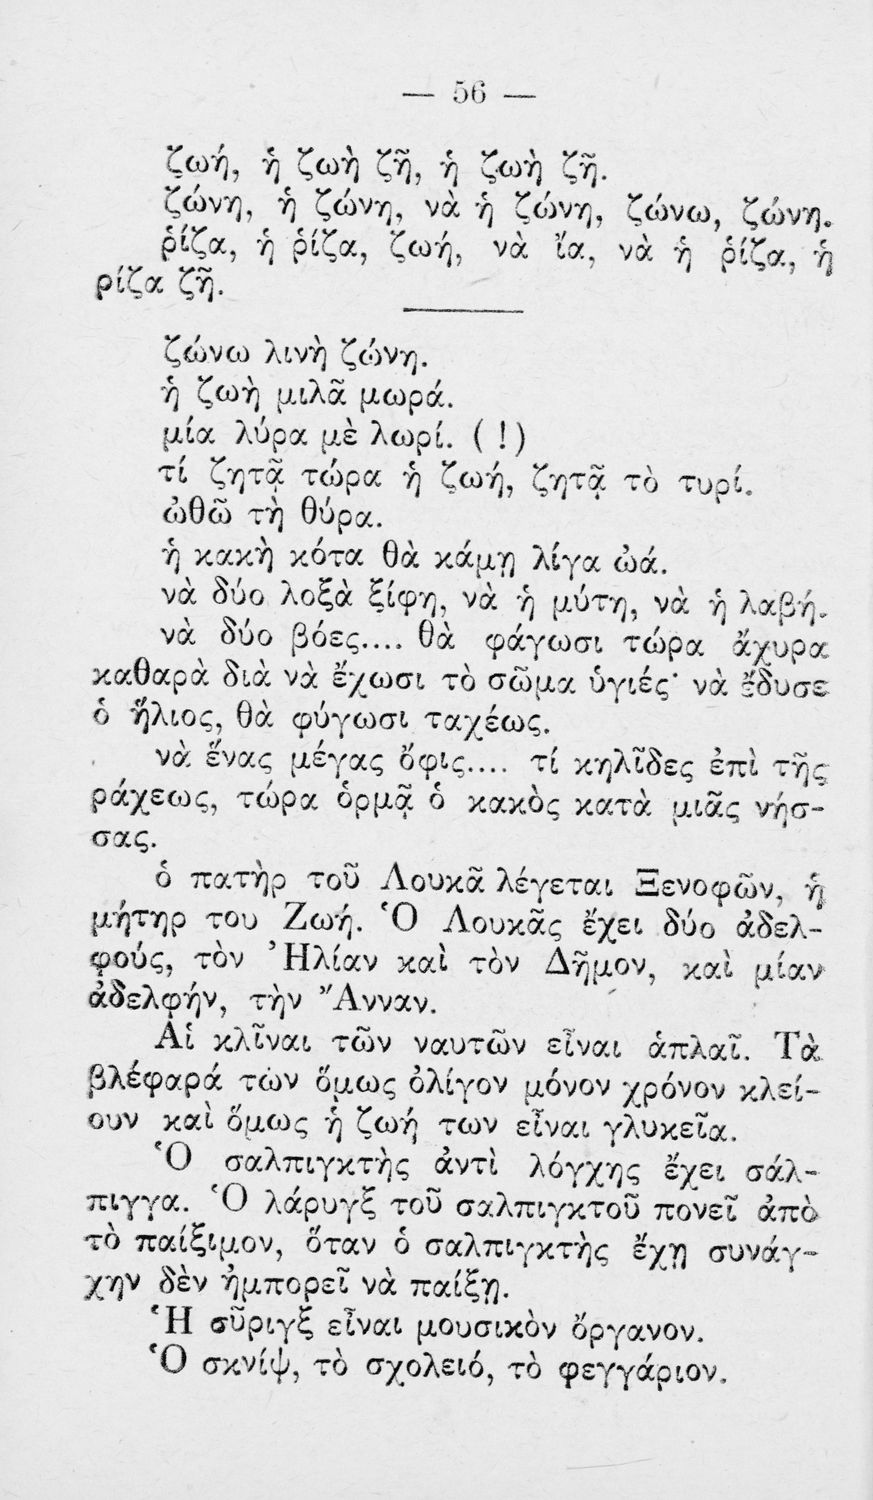 — 56 —
ζωή, ἡ ζωὴ ζῆ, ἡ ζωὴ ζῆ.
ζώνη, ἡ ζώνη, νὰ ἡ ζώνη, ζώνω, ζώνη.
ῥίζα, ἡ ῥίζα, ζωή, νὰ ἴα, νὰ ἡ ῥίζα, ἡ
ρίζα ζῆ.
ζώνω λινὴ ζώνη.
ἡ ζωὴ μιλᾶ μωρά.
μία λύρα μὲ λωρί. ( ! )
τί ζητᾷ τώρα ἡ ζωή, ζητᾷ τὸ τυρί.
ὠθῶ τὴ θύρα.
ἡ κακὴ κότα θὰ κάμῃ λίγα ὠά.
νὰ δύο λοξὰ ξίφη, νὰ ἡ μύτη, νὰ ἡ λαβή.
νὰ δύο βόες.... θὰ φάγωσι τώρα ἄχυρα
καθαρὰ διὰ νὰ ἔχωσι τὸ σῶμα ὑγιές· νὰ ἔδυσε
ὁ ἥλιος, θὰ φύγωσι ταχέως.
νὰ ἕνας μέγας ὄφις.... τί κηλῖδες ἐπὶ τῆς
ράχεως, τώρα ὁρμᾷ ὁ κακὸς κατὰ μιᾶς νήσ-
σας.
ὁ πατὴρ τοῦ Λουκᾶ λέγεται Ξενοφῶν, ἡ
μήτηρ του Ζωή. Ὁ Λουκᾶς ἔχει δύο ἀδελ-
φούς, τὸν Ἠλίαν καὶ τὸν Δῆμον, καὶ μίαν
ἀδελφήν, τὴν Ἄνναν.
Αἱ κλῖναι τῶν ναυτῶν εἶναι ἁπλαῖ. Τὰ
βλέφαρά των ὅμως ὀλίγον μόνον χρόνον κλεί-
ουν καὶ ὅμως ἡ ζωή των εἶναι γλυκεῖα.
Ὁ σαλπιγκτὴς ἀντὶ λόγχης ἔχει σάλ-
πιγγα. Ὁ λάρυγξ τοῦ σαλπιγκτοῦ πονεῖ ἀπὸ
τὸ παίξιμον, ὅταν ὁ σαλπιγκτὴς ἔχῃ συνάγ-
χην δὲν ἠμπορεῖ νὰ παίξῃ.
Ἡ σῦριγξ εἶναι μουσικὸν ὄργανον.
Ὁ σκνίψ, τὸ σχολειό, τὸ φεγγάριον.